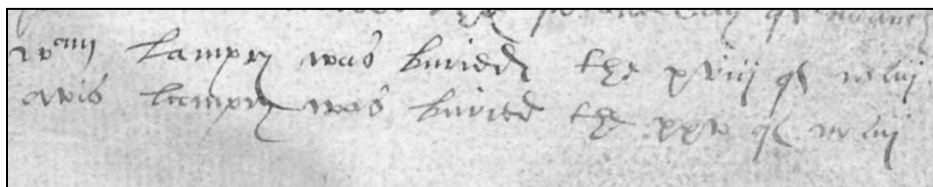 wm Lampry was buried the xviii of
avis Lampry was buried the xxv of